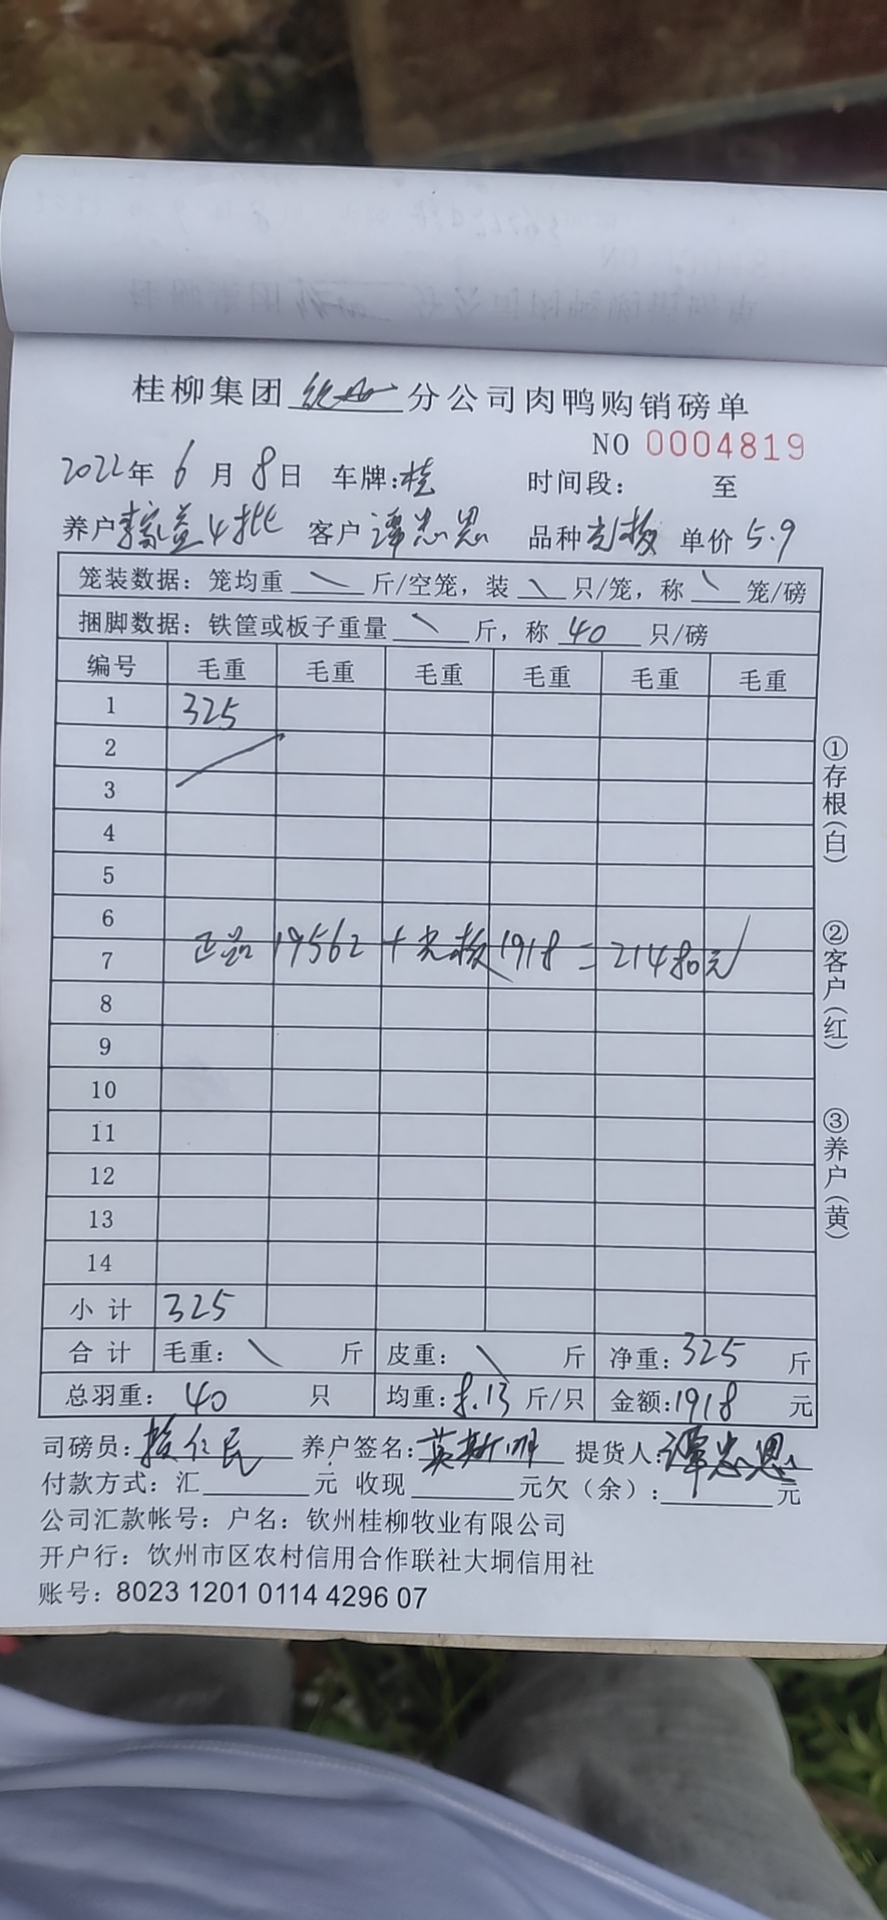 桂柳集团 钦州 分公司肉鸭购销磅单
NO 0004819
2022年 6 月 8日 车牌:桂 时间段: 至
养户 李家益4批 客户 谭忠恩 品种 单价 5.9
笼装数据: 笼均重 \ 斤/空笼, 装 \ 只/笼, 称 \ 笼/磅
捆脚数据: 铁筐或板子重量 \ 斤, 称 40 只/磅
编号 毛重 毛重 毛重 毛重 毛重 毛重
1 325
2
3
4
5
6
正品 19562 + 1918 = 21480元
7
8
9
10
11
12
13
14
小 计 325
合 计 毛重: \ 斤 皮重: \ 斤 净重: 325 斤
总羽重: 40 只 均重: 8.13 斤/只 金额: 1918 元
司磅员: 养户签名: 提货人: 谭忠恩
付款方式: 汇 元 收现 元欠(余): 元
公司汇款帐号: 户名: 钦州桂柳牧业有限公司
开户行: 钦州市区农村信用合作联社大垌信用社
账号: 8023 1201 0114 4296 07
①存根(白)
②客户(红)
③养户(黄)